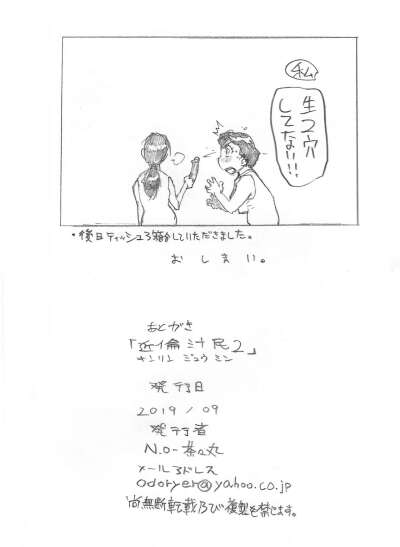 私
生つ穴
してない!!
・後日ティッシュ3箱分していただきました。
おしまい。
あとがき
「近倫汁民2」
キンリン ジュウ ミン
発行日
2019/09
発行者
N.O-茶々丸
メールアドレス
odoryer@yahoo.co.jp
尚無断転載及び複製を禁じます。